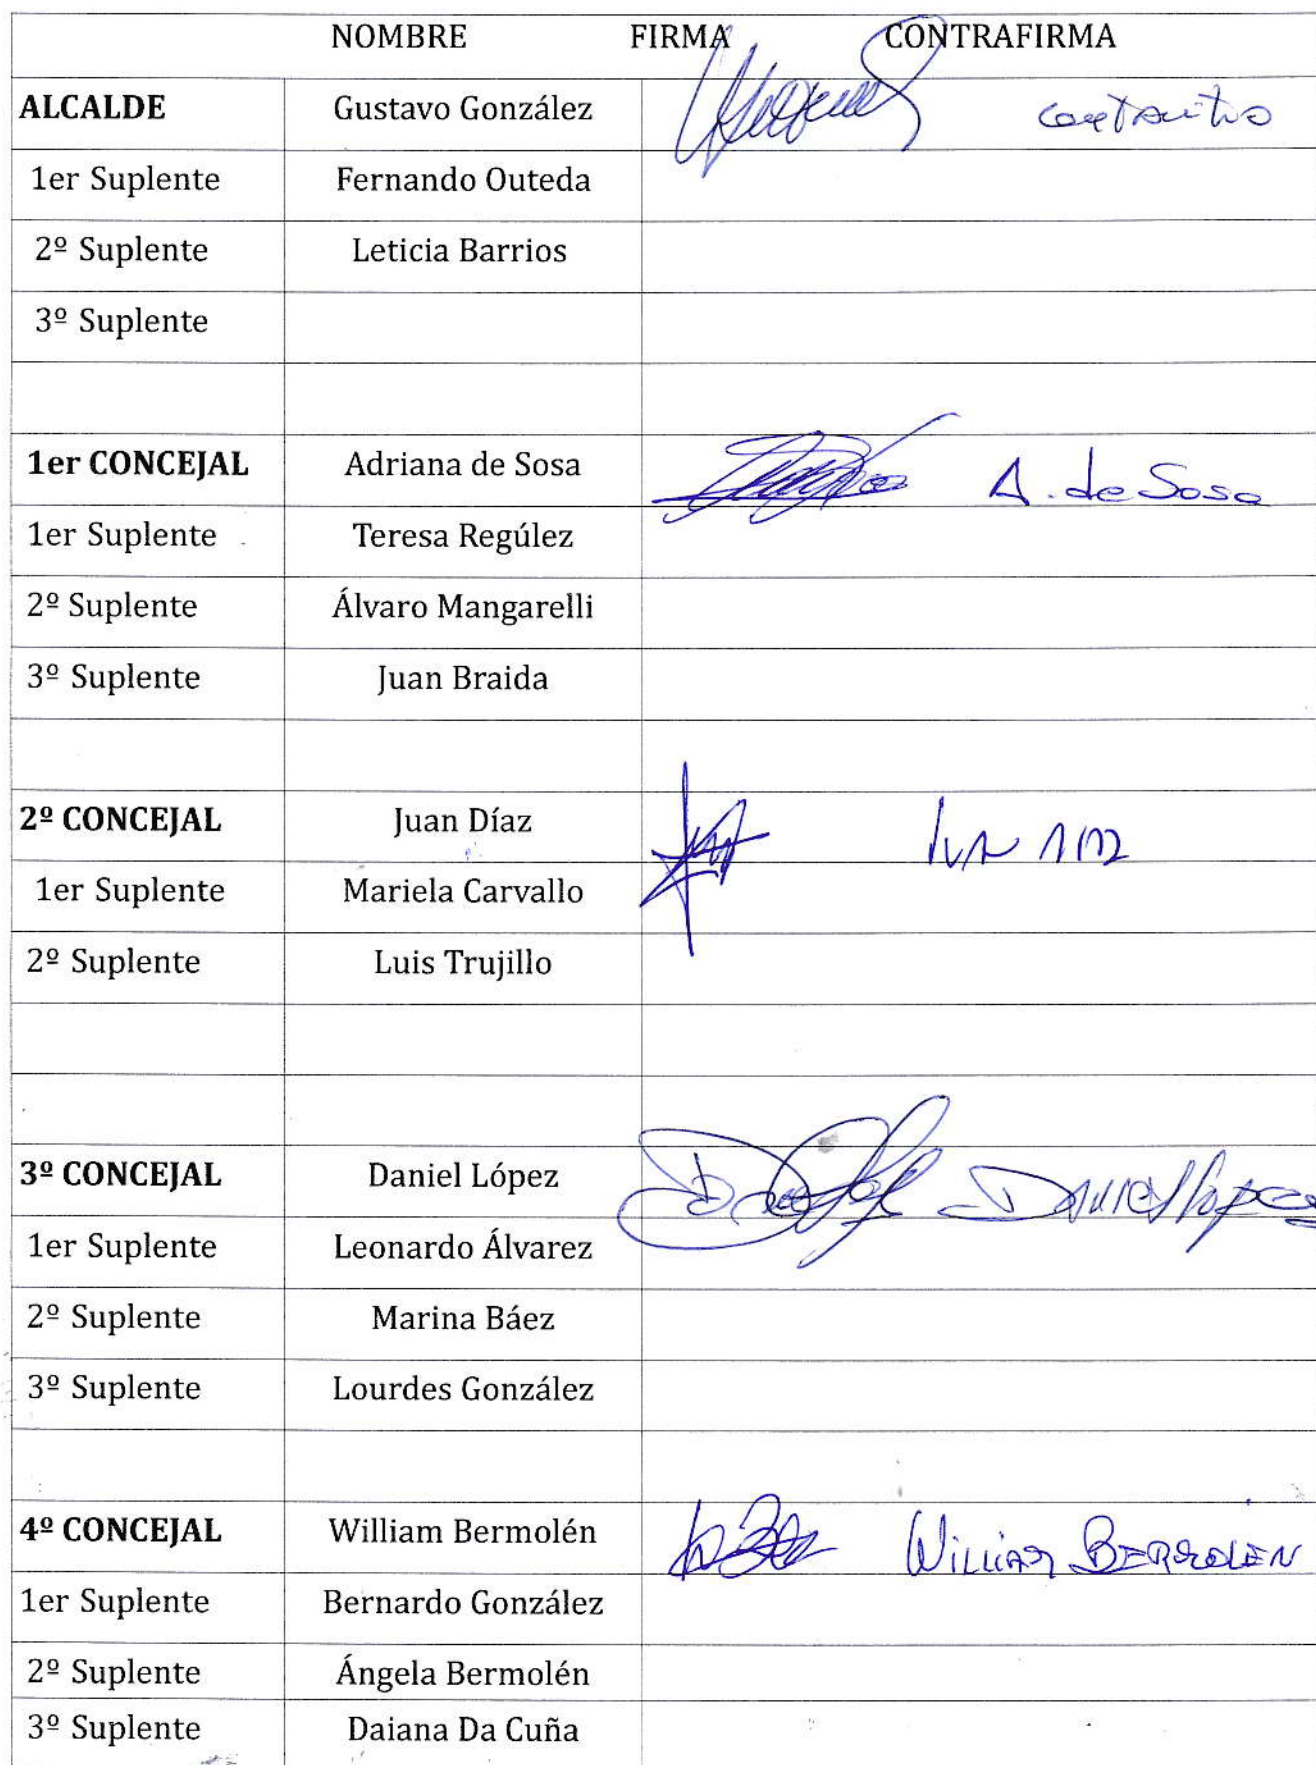 NOMBRE FIRMA CONTRAFIRMA
ALCALDE Gustavo González
1er Suplente Fernando Outeda
2º Suplente Leticia Barrios
3º Suplente
1er CONCEJAL Adriana de Sosa A. de Sosa
1er Suplente Teresa Regúlez
2º Suplente Álvaro Mangarelli
3º Suplente Juan Braida
2º CONCEJAL Juan Díaz
1er Suplente Mariela Carvallo
2º Suplente Luis Trujillo
3º CONCEJAL Daniel López Daniel López
1er Suplente Leonardo Álvarez
2º Suplente Marina Báez
3º Suplente Lourdes González
4º CONCEJAL William Bermolén WILLIAM BERMOLEN
1er Suplente Bernardo González
2º Suplente Ángela Bermolén
3º Suplente Daiana Da Cuña